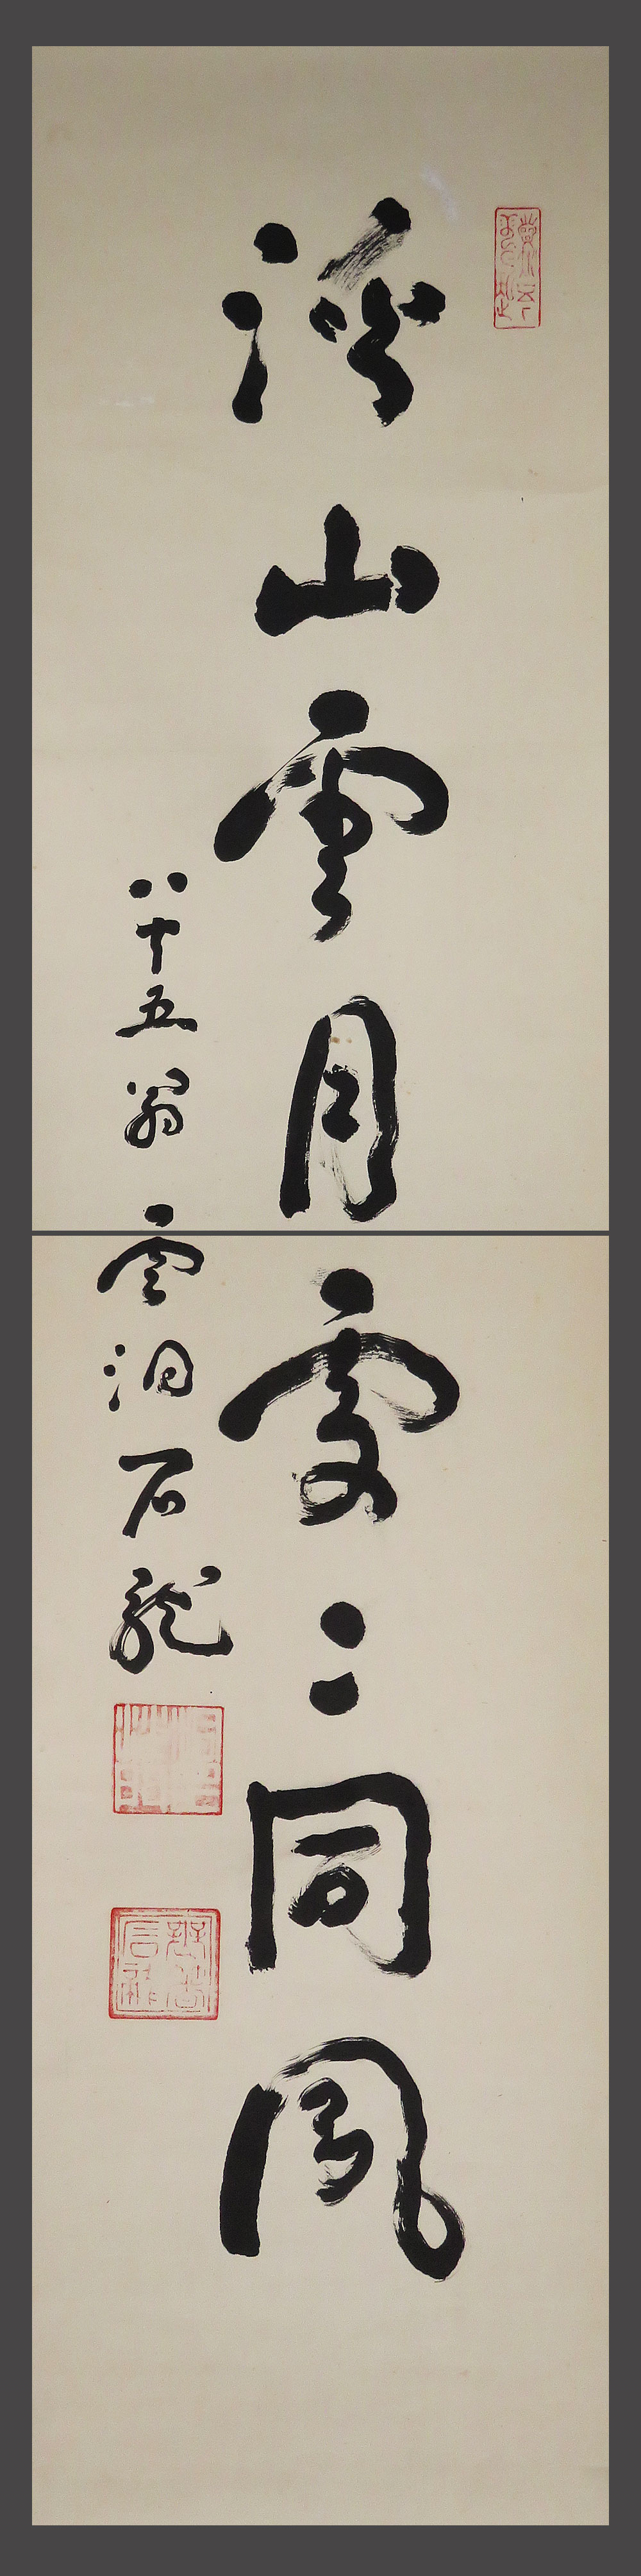 溪山雲月處〻同風
八十五翁 雲洞石龍